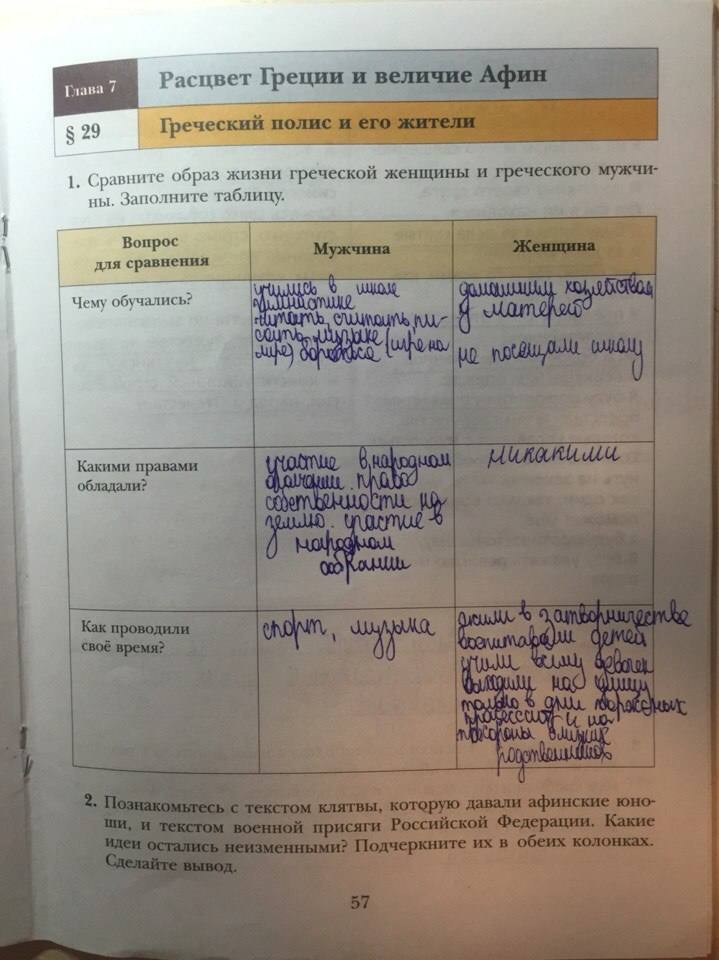 Глава 7
Расцвет Греции и величие Афин
§ 29
Греческий полис и его жители
1. Сравните образ жизни греческой женщины и греческого мужчи-
ны. Заполните таблицу.
Вопрос
для сравнения
Мужчина
Женщина
Чему обучались?
учились в школе
гимнастике
читать, считать, пи-
сать, музыке (игре на
лире) бороться
домашним хозяйствам
у матерей
не посещали школу
Какими правами
обладали?
участие в народном
собрании. право
собственности на
землю. участие в
народном
собрании
Никакими
Как проводили
своё время?
спорт, музыка
жили в затворничестве
воспитавали детей
учили всему девочек
выходили на улицу
только в дни
процессий и на
похороны близких
родственников
2. Познакомьтесь с текстом клятвы, которую давали афинские юно-
ши, и текстом военной присяги Российской Федерации. Какие
идеи остались неизменными? Подчеркните их в обеих колонках.
Сделайте вывод.
57